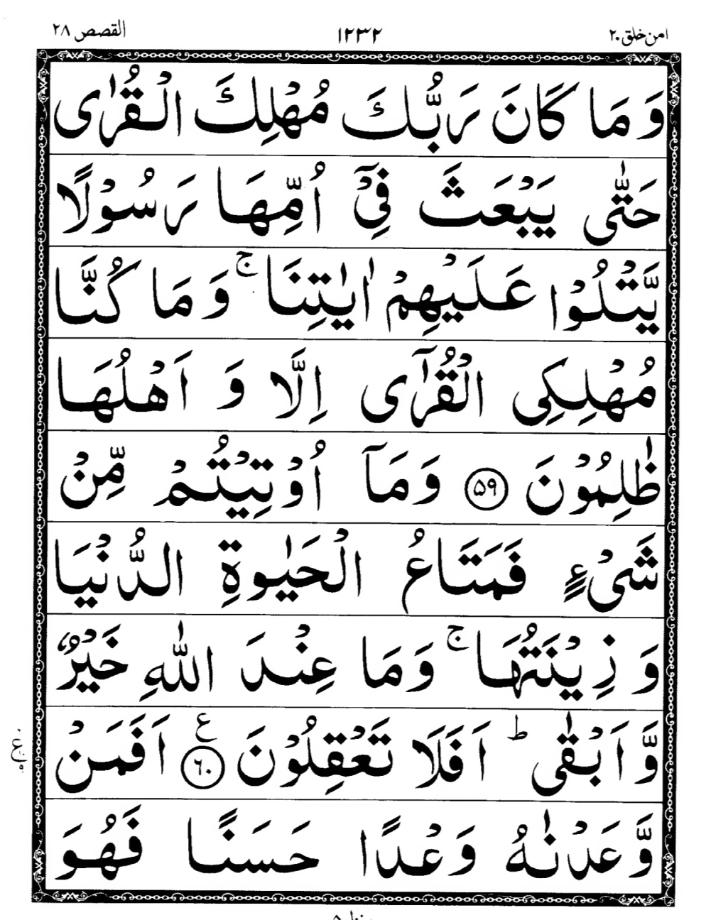 امن خلق ۲۰ ۱۲۳۲ القصص ۲۸
وَمَا كَانَ رَبُّكَ مُهْلِكَ الْقُرٰى
حَتّٰى يَبْعَثَ فِيْۤ اُمِّهَا رَسُوْلًا
يَّتْلُوْا عَلَيْهِمْ اٰيٰتِنَا ۚ وَمَا كُنَّا
مُهْلِكِى الْقُرٰٓى اِلَّا وَ اَهْلُهَا
ظٰلِمُوْنَ ۵۹ وَمَاۤ اُوْتِيْتُمْ مِّنْ
شَىْءٍ فَمَتَاعُ الْحَيٰوةِ الدُّنْيَا
وَ زِيْنَتُهَا ۚ وَمَا عِنْدَ اللّٰهِ خَيْرٌ
وَّاَبْقٰى ؕ اَفَلَا تَعْقِلُوْنَ ۶۰ ع اَفَمَنْ
وَّعَدْنٰهُ وَعْدًا حَسَنًا فَهُوَ